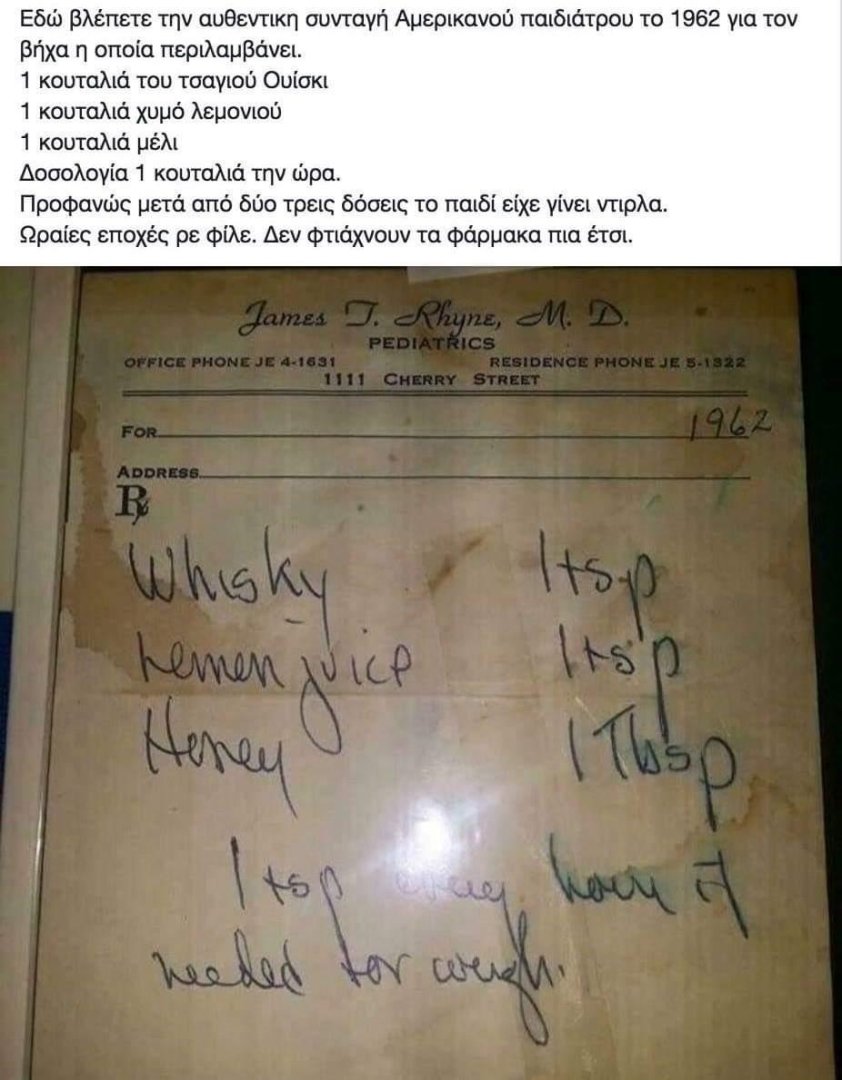 Εδώ βλέπετε την αυθεντικη συνταγή Αμερικανού παιδιάτρου το 1962 για τον
βήχα η οποία περιλαμβάνει.
1 κουταλιά του τσαγιού Ουίσκι
1 κουταλιά χυμό λεμονιού
1 κουταλιά μέλι
Δοσολογία 1 κουταλιά την ώρα.
Προφανώς μετά από δύο τρεις δόσεις το παιδί είχε γίνει ντιρλα.
Ωραίες εποχές ρε φίλε. Δεν φτιάχνουν τα φάρμακα πια έτσι.
James T. Rhyne, M. D.
PEDIATRICS
OFFICE PHONE JE 4-1631 RESIDENCE PHONE JE 5-1322
1111 CHERRY STREET
FOR 1962
ADDRESS
℞
Whisky 1 tsp
Lemon juice 1 tsp
Honey 1 Tbsp
1 tsp every hour if
needed for cough.